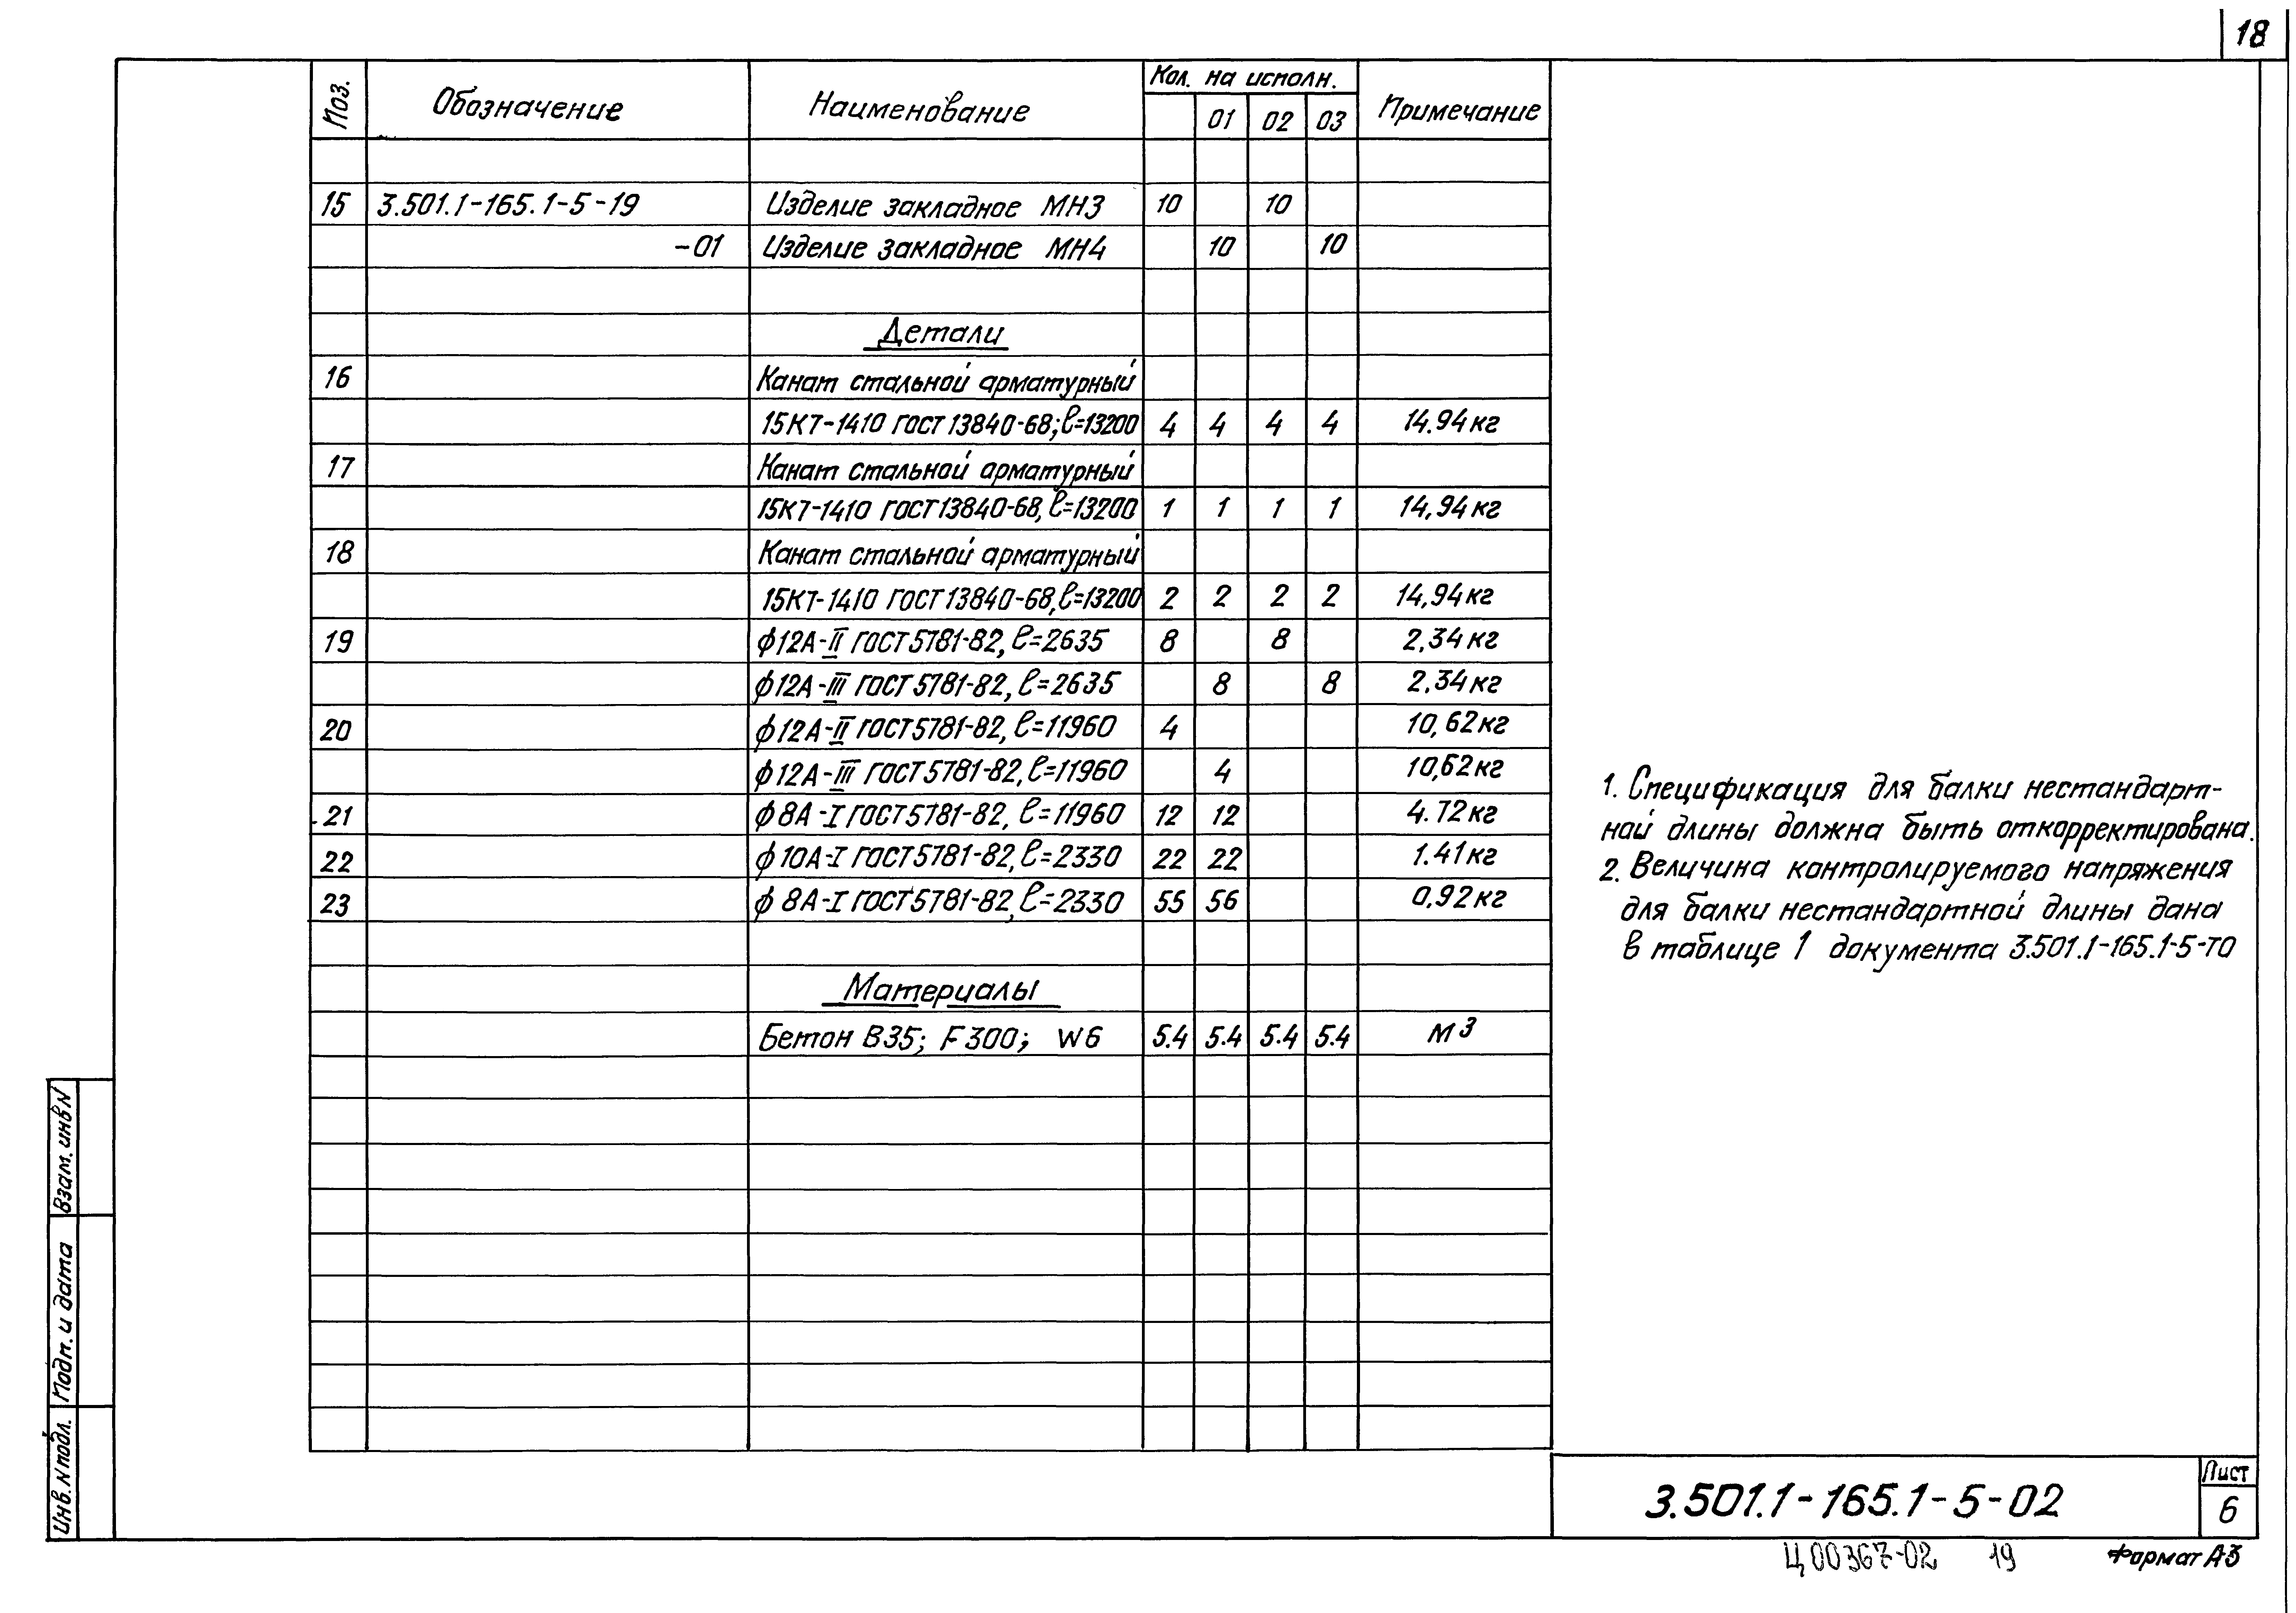 18
Поз. Обозначение Наименование Кол. на исполн. Примечание
01 02 03
15 3.501.1-165.1-5-19 Изделие закладное МН3 10 10
-01 Изделие закладное МН4 10 10
Детали
16 Канат стальной арматурный
15К7-1410 ГОСТ 13840-68; ℓ=13200 4 4 4 4 14.94кг
17 Канат стальной арматурный
15К7-1410 ГОСТ 13840-68, ℓ=13200 1 1 1 1 14,94кг
18 Канат стальной арматурный
15К7-1410 ГОСТ 13840-68, ℓ=13200 2 2 2 2 14,94кг
19 ϕ12А-II ГОСТ 5781-82, ℓ=2635 8 8 2,34кг
ϕ12А-III ГОСТ 5781-82, ℓ=2635 8 8 2.34кг
20 ϕ12А-II ГОСТ 5781-82, ℓ=11960 4 10,62кг
ϕ12А-III ГОСТ 5781-82, ℓ=11960 4 10,62кг
21 ϕ8А-I ГОСТ 5781-82, ℓ=11960 12 12 4.72кг
22 ϕ10А-I ГОСТ 5781-82, ℓ=2330 22 22 1.41кг
23 ϕ8А-I ГОСТ 5781-82, ℓ=2330 55 56 0,92кг
Материалы
Бетон В35; F300; W6 5.4 5.4 5.4 5.4 м³
1. Спецификация для балки нестандарт-
ной длины должна быть откорректирована.
2. Величина контролируемого напряжения
для балки нестандартной длины дана
в таблице 1 документа 3.501.1-165.1-5-ТО
Взам. инв N
Подп. и дата
Инв. N подл.
3.501.1-165.1-5-02
Лист
6
Ц00367-02 19 Формат А3